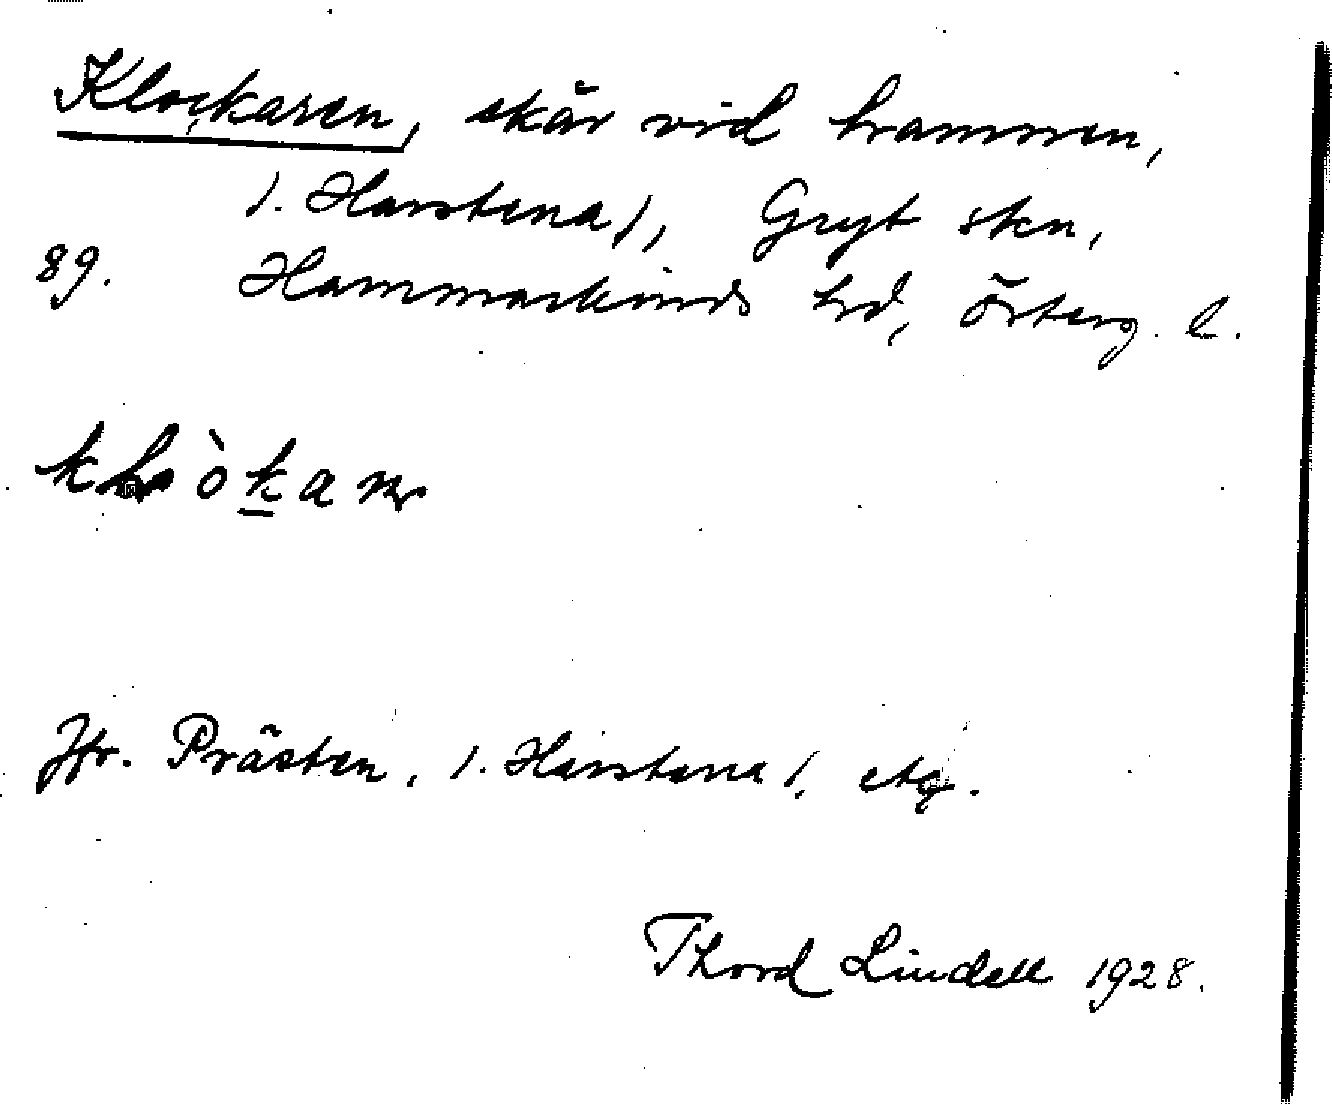 Klockaren, skär vid hamnen,
/. Harstena /, Gryt skn,
89. Hammarkinds hd, Österg. l.
Jfr. Prästen, /. Harstena /,
Thord Lindell 1928.